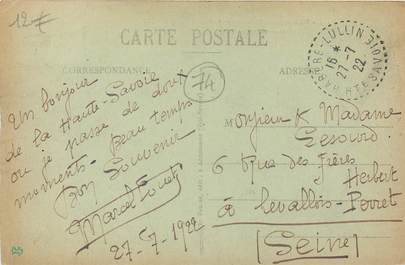 12€
CARTE POSTALE
CORRESPONDANCE
ADRESSE
74
LULLIN
HTE SAVOIE
16 *
27-7
22
Un bonjour
de la Haute-Savoie
où je passe de doux
moments - Beau temps
Bon Souvenir
Marcel
27-7-1922
Monsieur & Madame
6 rue des Frères
Herbert
à Levallois-Perret
(Seine)